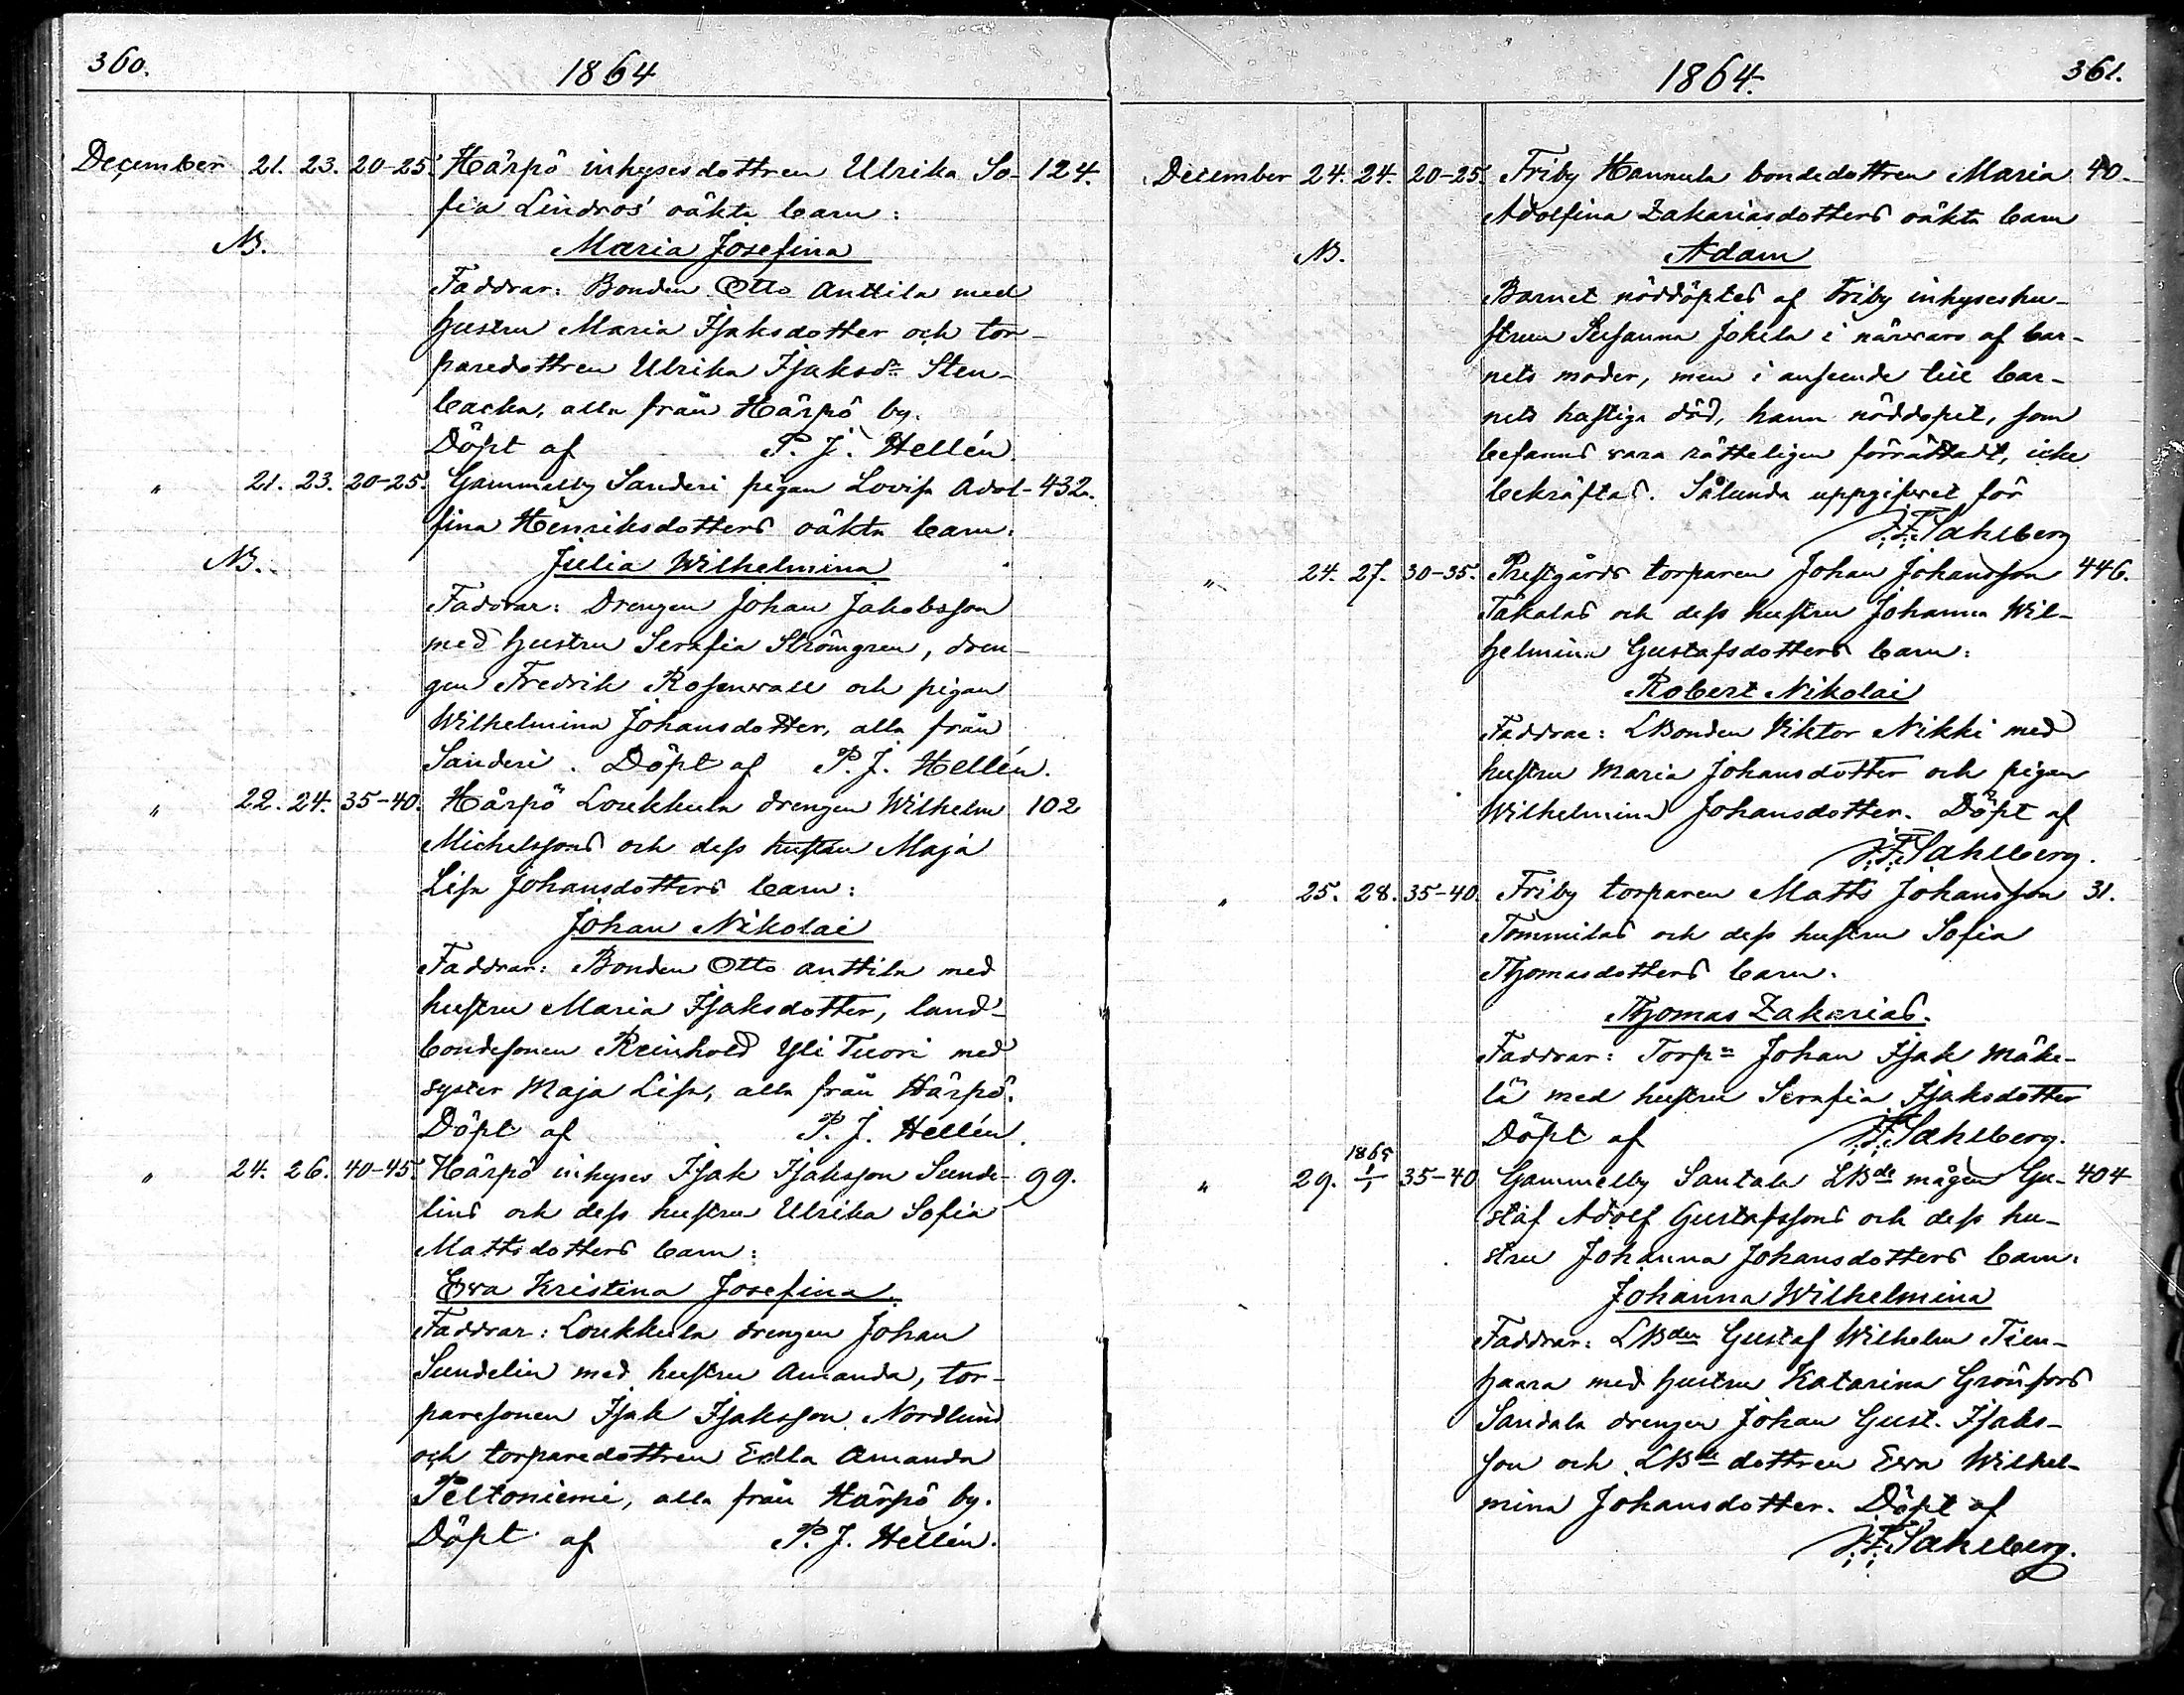 360.
1864
December 21. 23. 20-25. Härpö inhysesdottren Ulrika So- 124.
fia Lindros' oäkta barn:
NB.
Maria Josefina
Faddrar: Bonden Otto Anttila med
hustru Maria Isaksdotter och tor-
paredottren Ulrika Isaksdr Sten-
backa, alla från Härpö by.
Döpt af P. J. Hellén.
" 21. 23. 20-25. Gammelby Sanderi pigan Lovisa Adol- 432.
fina Henriksdotters oäkta barn:
NB.
Julia Wilhelmina
Faddrar: Drengen Johan Jakobsson
med hustru Serafia Strömgren, dren-
gen Fredrik Rosenwall och pigan
Wilhelmina Johansdotter, alla från
Sanderi. Döpt af P. J. Hellén.
" 22. 24. 35-40. Härpö Loukkula drengen Wilhelm 102
Michelssons och dess hustru Maja
Lisa Johansdotters barn:
Johan Nikolai
Faddrar: Bonden Otto Anttila med
hustru Maria Isaksdotter, land-
bondesonen Reinhold Yli Tuori med
syster Maja Lisa, alla från Härpö.
Döpt af P. J. Hellén.
" 24. 26. 40-45. Härpö inhyses Isak Isaksson Sunde- 99.
lins och dess hustru Ulrika Sofia
Mattsdotters barn:
Ewa Kristina Josefina.
Faddrar: Loukkula drengen Johan
Sundelin med hustru Amanda, tor-
paresonen Isak Isaksson Nordlund
och torparedottren Edla Amanda
Peltoniemi, alla från Härpö by.
Döpt af P. J. Hellén.
1864.
361.
December 24. 24. 20-25. Friby Hannula bondedottren Maria 40.
Adolfina Zakariasdotters oäkta barn
NB.
Adam
Barnet nöddöptes af Friby inhyseshu-
strun Susanna Jokela i närvaro af bar-
nets moder, men i anseende till bar-
nets hastiga död, hann nöddopet, som
befanns vara rätteligen förrättadt, icke
bekräftas. Sålunda uppgifvet för
F. F. Sahlberg
" 24. 27. 30-35. Prestgårds torparen Johan Johansson 446.
Takalas och dess hustru Johanna Wil-
helmina Gustafsdotters barn:
Robert Nikolai
Faddrar: LBonden Viktor Nikki med
hustru Maria Johansdotter och pigan
Wilhelmina Johansdotter. Döpt af
F. F. Sahlberg.
" 25. 28. 35-40. Friby torparen Matts Johansson 31.
Tommilas och dess hustru Sofia
Thomasdotters barn.
Thomas Zakarias.
Faddrar: Torpn Johan Isak Mäke-
lä med hustru Serafia Isaksdotter
Döpt af F. F. Sahlberg.
1865
" 29. 1/1 35-40 Gammelby Santala LBde mågen Gu- 404
staf Adolf Gustafssons och dess hu-
stru Johanna Johansdotters barn.
Johanna Wilhelmina
Faddrar: LBden Gustaf Wilhelm Tien-
haara med hustru Katarina Grönfors
Sandala drengen Johan Gust. Isaks-
son och LBde dottren Ewa Wilhel-
mina Johansdotter. Döpt af
F. F. Sahlberg.